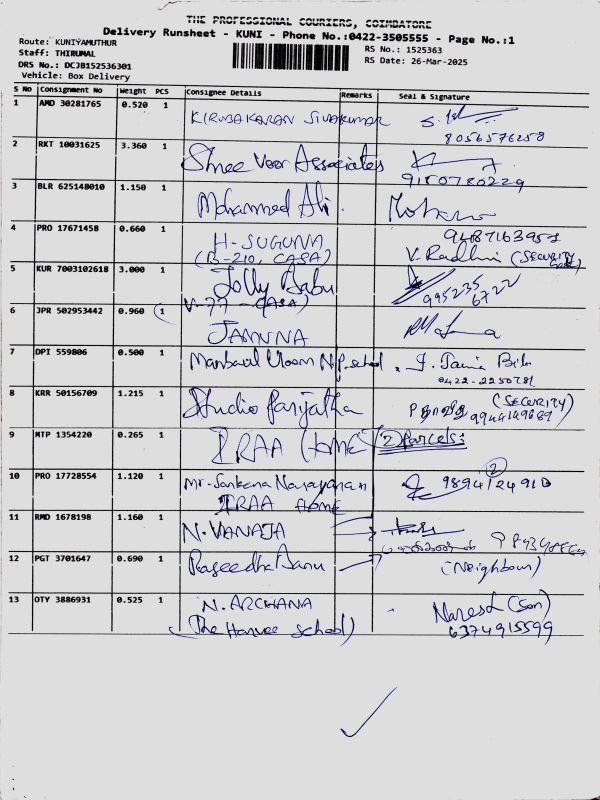 THE PROFESSIONAL COURIERS, COIMBATORE
Delivery Runsheet - KUNI - Phone No.:0422-3505555 - Page No.:1
Route: KUNIYAMUTHUR
RS No.: 1525363
Staff: THIRUMAL
RS Date: 26-Mar-2025
DRS No.: DCJB152536301
Vehicle: Box Delivery
S No Consignment No Weight PCS Consignee Details Remarks Seal & Signature
1 AMD 30281765 0.520 1 KIRUBAKARAN SIVAKUMAR
8056576258
2 RKT 10031625 3.360 1 Shree Veer Associates
9180780229
3 BLR 625148010 1.150 1 Mohammed Ali.
4 PRO 17671458 0.660 1 H-SUGUNA 9487163951
(B-210, CASA) V. Radhi (SECURITY
5 KUR 7003102618 3.000 1 Jolly Babu
V-77 - CASA) 995235
6722
6 JPR 502953442 0.960 1 JAMUNA
7 DPI 559806 0.500 1 N.P. School
0422-2250781
8 KRR 50156709 1.215 1 Studio Parijatha (SECURITY)
9944149689
9 MTP 1354220 0.265 1 IRAA Home (2) Parcels:
10 PRO 17728554 1.120 1 Mr. Sankara Narayanan 98941 24910 (2)
IRAA Home
11 RMD 1678198 1.160 1 N. VANAJA
12 PGT 3701647 0.690 1 Raseedha Banu (Neighbour)
13 OTY 3886931 0.525 1 N. ARCHANA Naresh (Son)
(The Harvee School) 6374915599